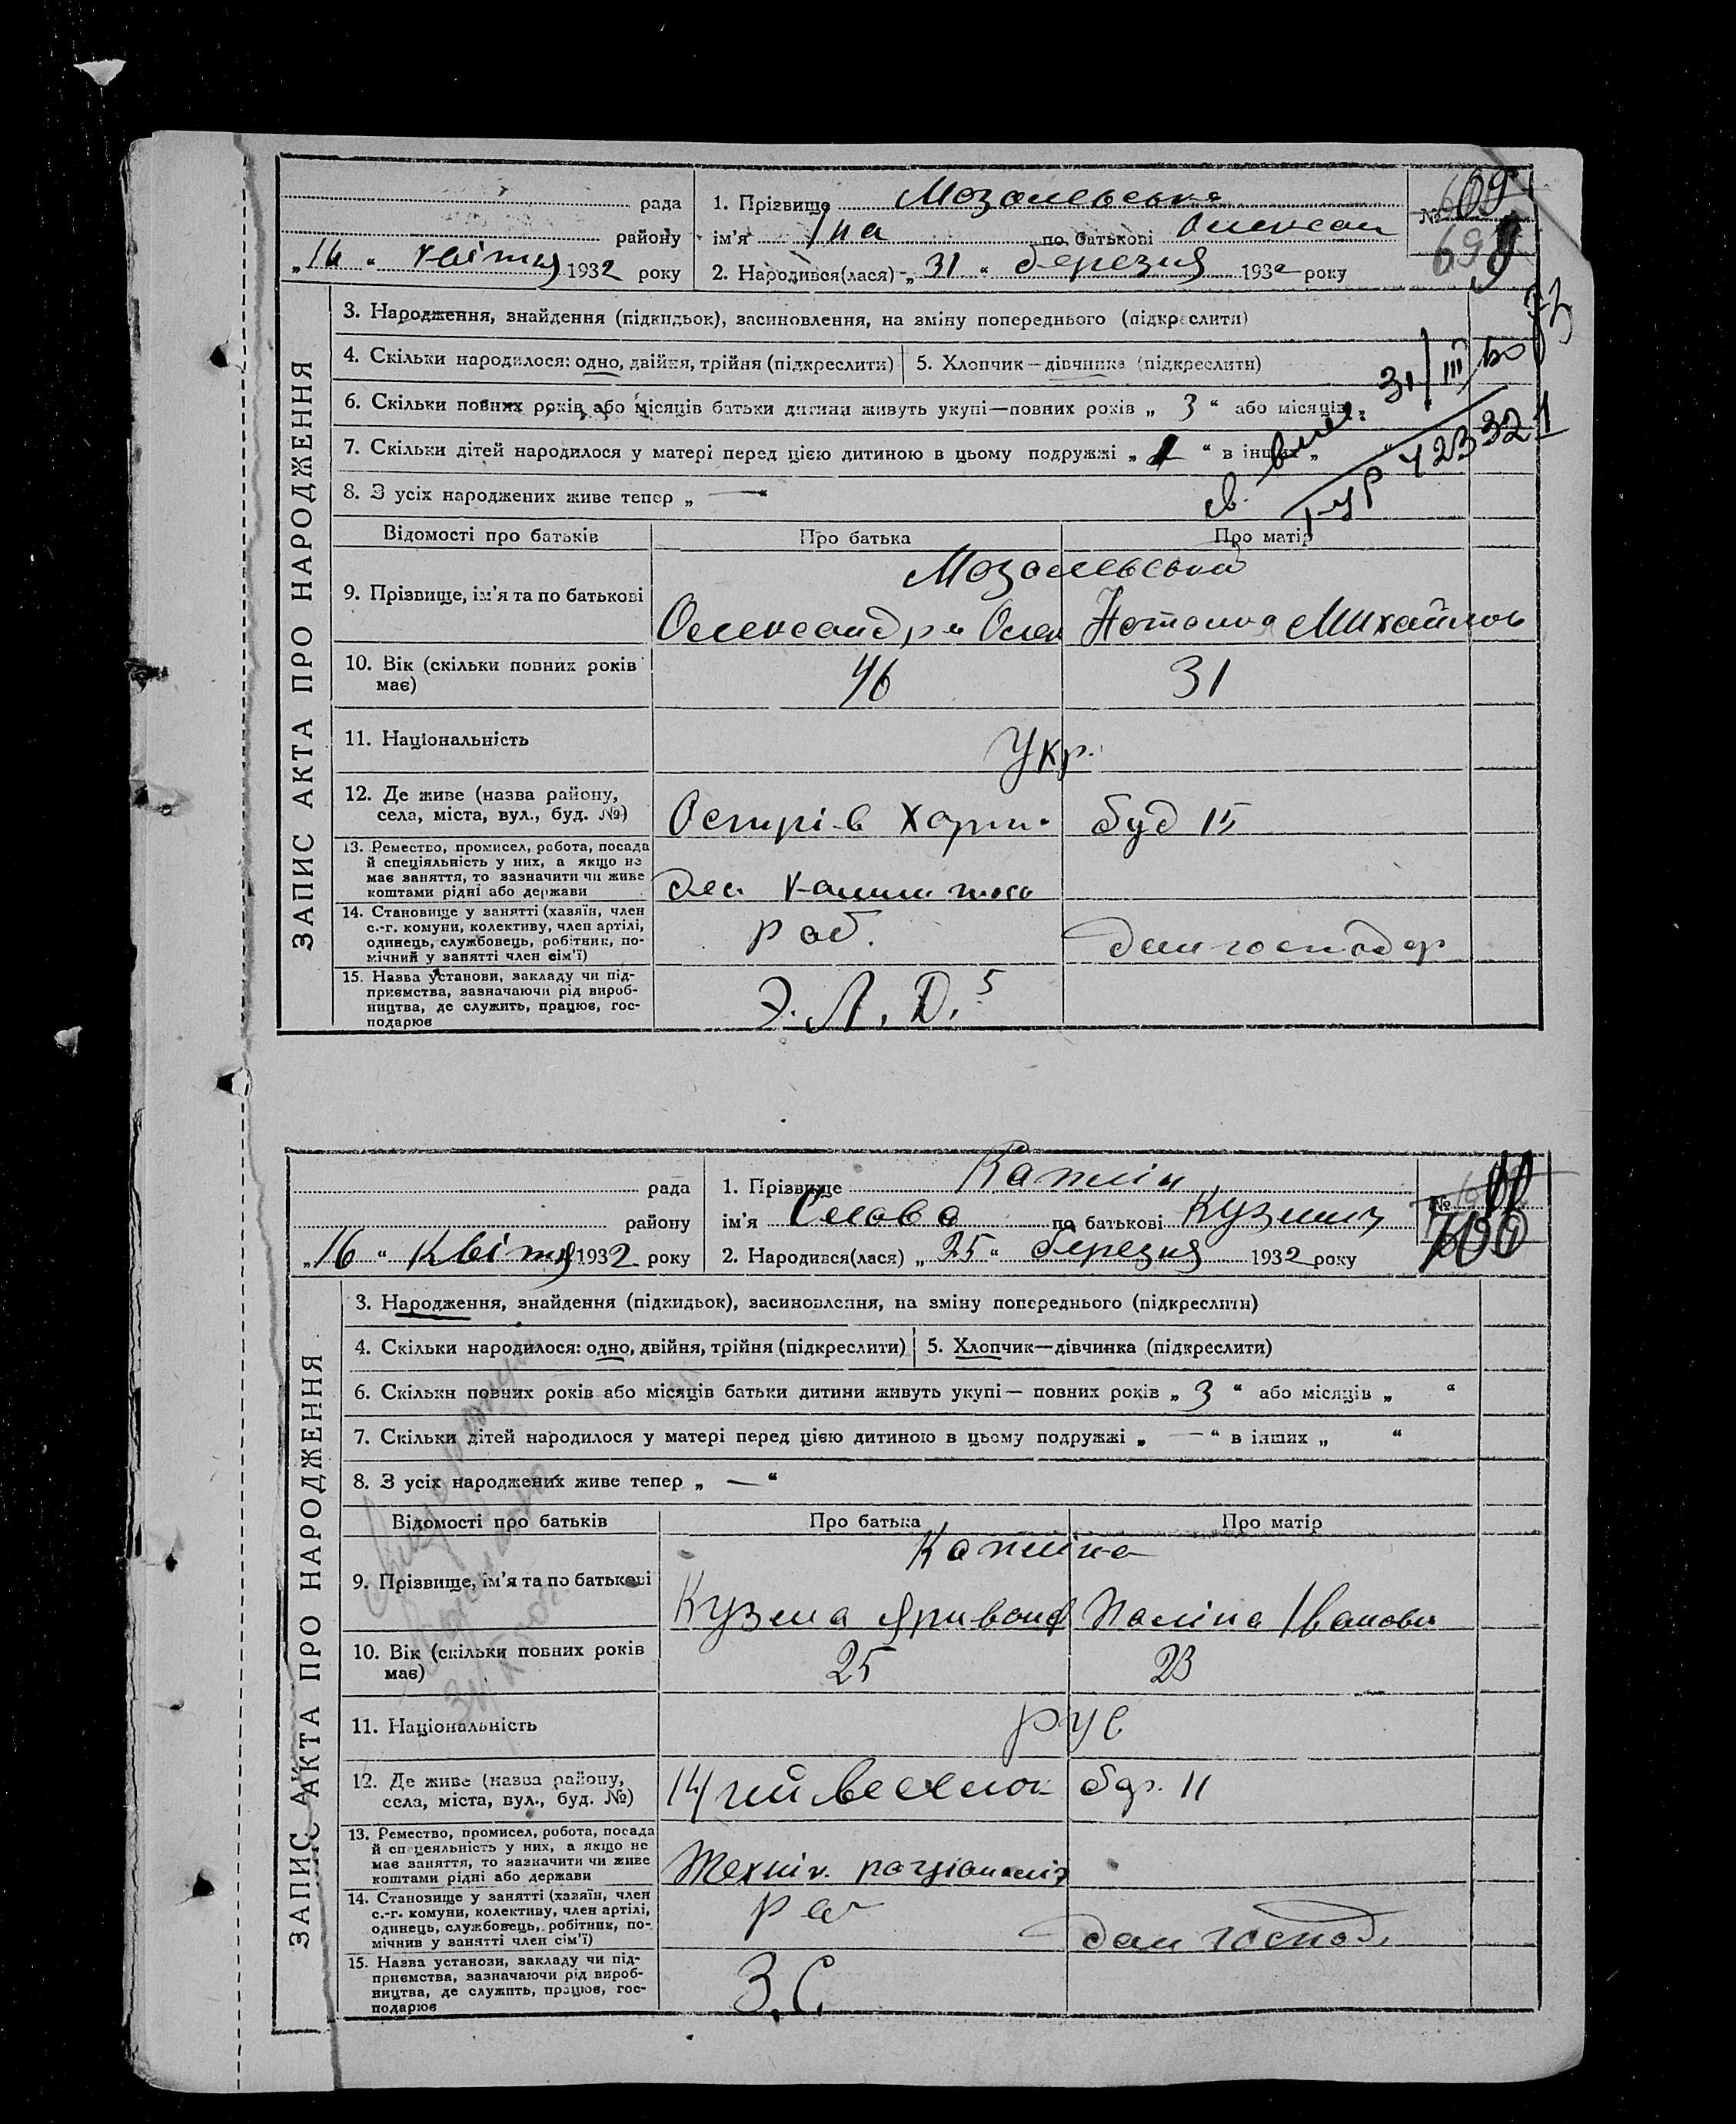 рада
району
„16“ квітня 1932 року
1. Прізвище Мозалевська
ім’я Іна по батькові Олексан
2. Народився(лася) „31“ березня 1932 року
№ 609
699
ЗАПИС АКТА ПРО НАРОДЖЕННЯ
3. Народження, знайдення (підкидьок), засиновлення, на зміну попереднього (підкреслити)
4. Скільки народилося: одно, двійня, трійня (підкреслити) 5. Хлопчик—дівчинка (підкреслити)
6. Скільки повних років або місяців батьки дитини живуть укупі—повних років „ 3 “ або місяців „
7. Скільки дітей народилося у матері перед цією дитиною в цьому подружжі „ 1 “ в інших „
8. З усіх народжених живе тепер „ — “
св. 31/III
Відомості про батьків Про батька Про матір
Мозалевська
9. Прізвище, ім’я та по батькові
Олександр Олек Наталка Михайлов
10. Вік (скільки повних років має) 46 31
11. Національність Укр.
12. Де живе (назва району, села, міста, вул., буд. №) Острів Хорти. буд 15
13. Ремество, промисел, робота, посада
й спеціяльність у них, а якщо не
має заняття, то зазначити чи живе
коштами рідні або держави
14. Становище у занятті (хазяїн, член
с.-г. комуни, колективу, член артілі,
одинець, службовець, робітник, по-
мічний у занятті член сім’ї)
роб. дом господар
15. Назва установи, закладу чи під-
приємства, зазначаючи рід вироб-
ництва, де служить, працює, гос-
подарює
Э. Л. D. 5
рада
району
„16“ Квітня 1932 року
1. Прізвище Катлін
ім’я Слава по батькові Кузмич
2. Народився(лася) „25“ березня 1932 року
№
700
ЗАПИС АКТА ПРО НАРОДЖЕННЯ
3. Народження, знайдення (підкидьок), засиновлення, на зміну попереднього (підкреслити)
4. Скільки народилося: одно, двійня, трійня (підкреслити) 5. Хлопчик—дівчинка (підкреслити)
6. Скільки повних років або місяців батьки дитини живуть укупі— повних років „ 3 “ або місяців „ “
7. Скільки дітей народилося у матері перед цією дитиною в цьому подружжі „ — “ в інших „ “
8. З усіх народжених живе тепер „ — “
Відомості про батьків Про батька Про матір
Катліна
9. Прізвище, ім’я та по батькові
Кузма Поліна Іванови
10. Вік (скільки повних років має) 25 23
11. Національність рус
12. Де живе (назва району, села, міста, вул., буд. №) 14 буд. 11
13. Ремество, промисел, робота, посада
й спецеяльність у них, а якщо не
має заняття, то зазначити чи живе
коштами рідні або держави
Технік раціоналіз
14. Становище у занятті (хазяїн, член
с.-г. комуни, колективу, член артілі,
одинець, службовець, робітник, по-
мічнив у занятті член сім’ї)
роб дом господ.
15. Назва установи, закладу чи під-
приємства, зазначаючи рід вироб-
ництва, де служить, працює, гос-
подарює
З. С.